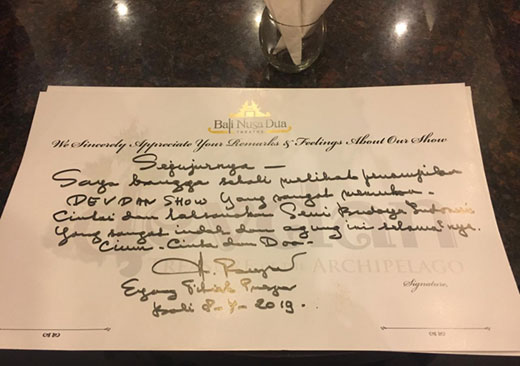 Bali Nusa Dua
THEATRE
We Sincerely Appreciate Your Remarks & Feelings About Our Show
Sejujurnya —
Saya bangga sekali melihat penampilan
DEVDAN SHOW yang sangat memukau.
Cintai dan laksanakan Seni Budaya Indonesia
yang sangat indah dan agung ini selama²nya.
Cium - Cinta dan Doa -
ARCHIPELAGO
Signature,
Eyang Titiek Puspa
Bali 8-7-2019.